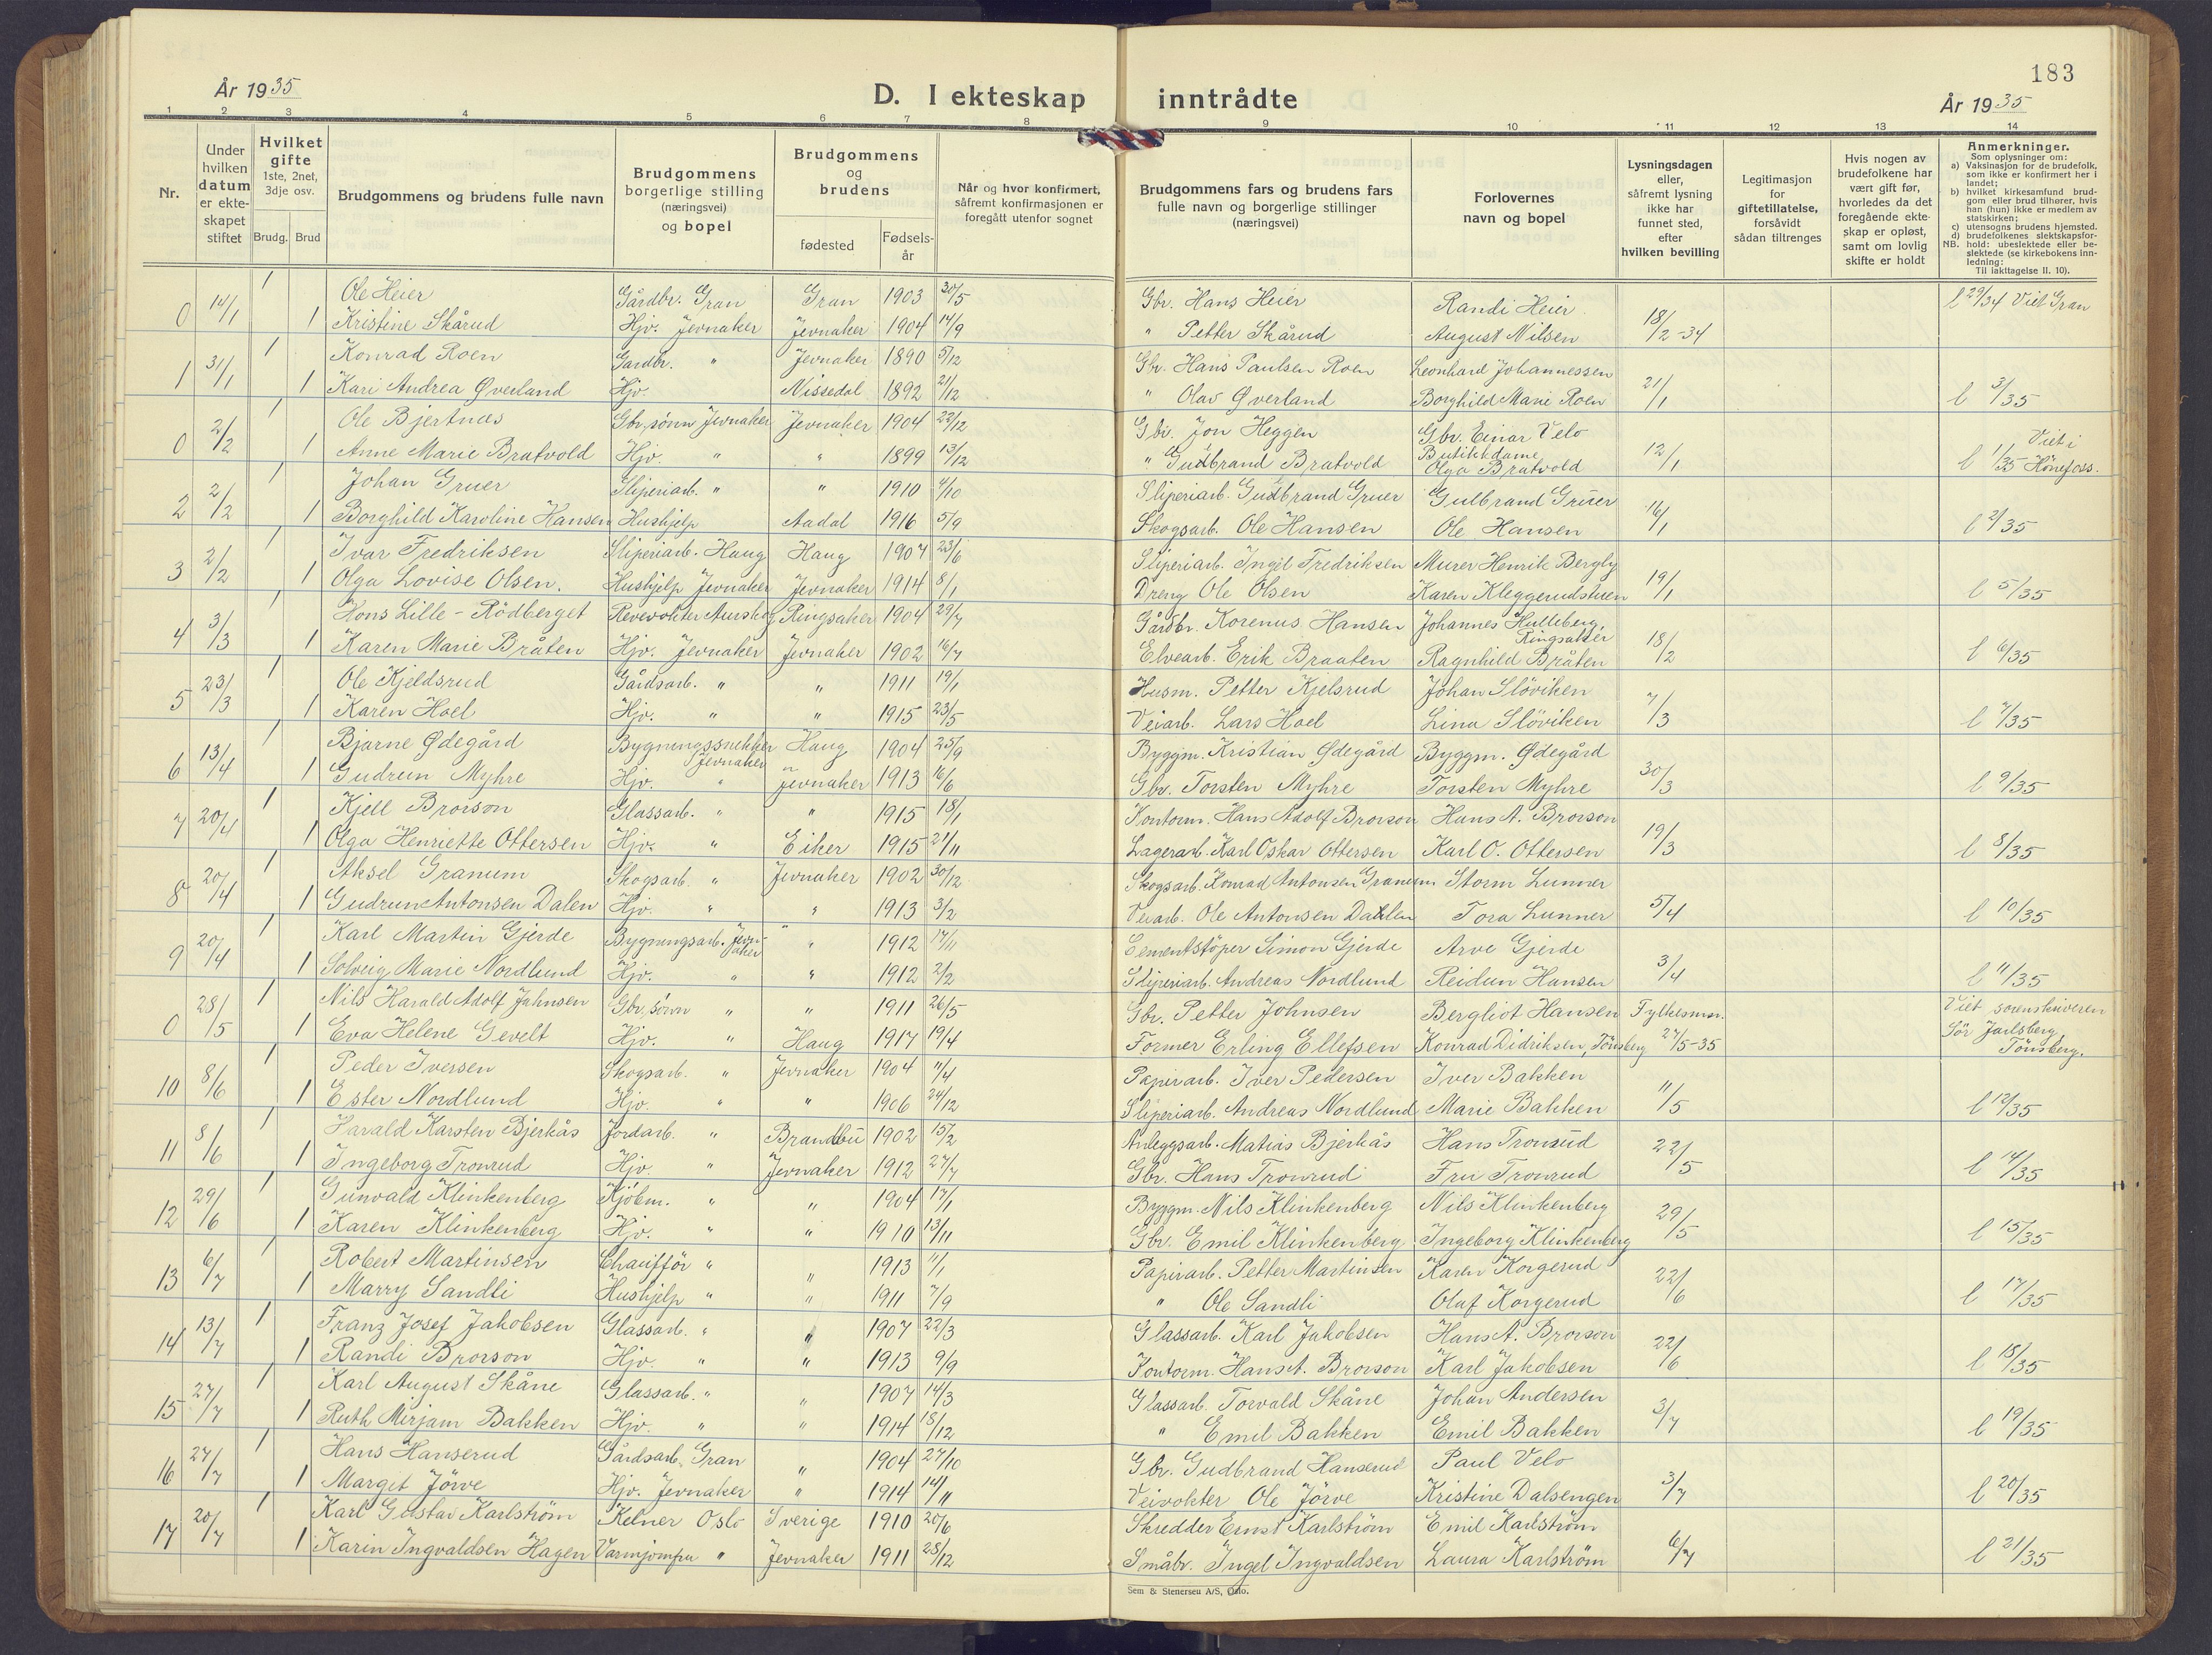 183
År 1935
D. I ekteskap inntrådte
År 1935
1 2 3 4 5 6 7 8 9 10 11 12 13 14
Nr.
Under hvilken datum er ekteskapet stiftet
Hvilket gifte 1ste, 2net, 3dje osv.
Brudg. Brud
Brudgommens og brudens fulle navn
Brudgommens borgerlige stilling (næringsvei) og bopel
Brudgommens og brudens
fødested
Fødselsår
Når og hvor konfirmert, såfremt konfirmasjonen er foregått utenfor sognet
Brudgommens fars og brudens fars fulle navn og borgerlige stillinger (næringsvei)
Forlovernes navn og bopel
Lysningsdagen eller, såfremt lysning ikke har funnet sted, efter hvilken bevilling
Legitimasjon for giftetillatelse, forsåvidt sådan tiltrenges
Hvis nogen av brudefolkene har vært gift før, hvorledes da det foregående ekteskap er opløst, samt om lovlig skifte er holdt
Anmerkninger.
Som oplysninger om:
a) Vaksinasjon for de brudefolk, som ikke er konfirmert her i landet;
b) hvilket kirkesamfund brudgom eller brud tilhører, hvis han (hun) ikke er medlem av statskirken;
c) utensogns brudens hjemsted.
d) brudefolkenes slektskapsforhold: ubeslektede eller beslektede (se kirkebokens innledning:
NB. Til iakttagelse II. 10).
0 14/1 1 Ole Heier Gårdbr. Gran Gran 1903 30/5 Gbr. Hans Heier Randi Heier 18/2-34 l 29/34 Viet Gran
1 Kristine Skårud Hjv. Jevnaker Jevnaker 1904 14/9 " Petter Skårud August Nilsen
1 31/1 1 Konrad Roen Gardbr. " Jevnaker 1890 5/12 Gbr. Hans Paulsen Roen Leonhard Johannessen 21/1 l 3/35
1 Kari Andrea Øverland Hjv. Nissedal 1892 21/12 " Olav Øverland Borghild Marie Roen
0 2/2 1 Ole Bjertnæs Gbr,sönn Jevnaker Jevnaker 1904 22/12 Gbr. Jon Heggen Gbr. Einar Velo 12/1 l 1/35 Viet i Hönefoss.
1 Anne Marie Bratvold Hjv. " " 1899 13/12 " Gudbrand Bratvold Butikkdame Olga Bratvold
2 2/2 1 Johan Gruer Sliperiarb. " " 1910 4/10 Sliperiarb. Gudbrand Gruer Gulbrand Gruer 16/1 l 2/35
1 Borghild Karoline Hansen Hushjelp Aadal 1916 5/9 Skogsarb. Ole Hansen Ole Hansen
3 2/2 1 Ivar Fredriksen Sliperiarb. Haug Haug 1907 23/6 Sliperiarb. Ingel Fredriksen Murer Henrik Bergly 19/1 l 5/35
1 Olga Lovise Olsen. Hushjelp Jevnaker Jevnaker 1914 8/1 Dreng Ole Olsen Karen Kleggerudstuen
4 3/3 1 Hans Lille-Rödberget Revevokter Aurskog Ringsaker 1904 29/7 Gårdbr. Korenus Hansen Johannes Hulleberg, Ringsaker 18/2 l 6/35
1 Karen Marie Bråten Hjv. Jevnaker Jevnaker 1902 16/7 Elvearb. Erik Braaten Ragnhild Bråten
5 23/3 1 Ole Kjeldsrud Gårdsarb. " " 1911 19/1 Husm. Petter Kjelsrud Johan Slöviken 7/3 l 7/35
1 Karen Hoel Hjv. " " 1915 23/5 Veiarb. Lars Hoel Lina Slöviken
6 13/4 1 Bjarne Ødegård Bygningssnekker Jevnaker Haug 1904 25/9 Byggm. Kristian Ødegård Byggm. Ødegård 30/3 l 9/35
1 Gudrun Myhre Hjv. " Jevnaker 1913 16/6 Gbr. Torsten Myhre Torsten Myhre
7 20/4 1 Kjell Brorson Glassarb. " " 1915 18/1 Kontorm. Hans Adolf Brorson Hans A. Brorson 19/3 l 8/35
1 Olga Henriette Ottersen Hjv. " Eiker 1915 21/11 Lagerarb. Karl Oskar Ottersen Karl O. Ottersen
8 20/4 1 Aksel Granum Skogsarb. " Jevnaker 1902 30/12 Skogsarb. Konrad Antonsen Granum Storm Lunner 5/4 l 10/35
1 Gudrun Antonsen Dalen Hjv. " " 1913 3/2 Veiarb. Ole Antonsen Dahlen Tora Lunner
9 20/4 1 Karl Martin Gjerde Bygningsarb. Jevnaker " 1912 17/11 Cementstöper Simon Gjerde Arve Gjerde 3/4 l 11/35
1 Solveig Marie Nordlund Hjv. " " 1912 2/2 Sliperiarb. Andreas Nordlund Reidun Hansen
0 28/5 1 Nils Harald Adolf Johnsen Gbr,sönn " " 1911 26/5 Gbr. Petter Johnsen Bergliot Hansen Fylkesmn. 27/5-35 Viet sorenskriveren Sör Jarlsberg, Tönsberg.
1 Eva Helene Gevelt Hjv. " Haug 1917 19/4 Former Erling Ellefsen Konrad Didriksen, Tönsberg
10 8/6 1 Peder Iversen Skogsarb. " Jevnaker 1904 11/4 Papirarb. Iver Pedersen Iver Bakken 11/5 l 12/35
1 Ester Nordlund Hjv. " " 1906 24/12 Sliperiarb. Andreas Nordlund Marie Bakken
11 8/6 1 Harald Karsten Bjerkås Jordarb. " Brandbu 1902 15/2 Anleggsarb. Matias Bjerkås Hans Tronrud 22/5 l 14/35
1 Ingeborg Tronrud Hjv. " Jevnaker 1912 27/7 Gbr. Hans Tronrud Fru Tronrud
12 29/6 1 Gunvald Klinkenberg Kjöbm. " " 1904 17/1 Byggm. Nils Klinkenberg Nils Klinkenberg 29/5 l 15/35
1 Karen Klinkenberg Hjv. " " 1910 13/11 Gbr. Emil Klinkenberg Ingeborg Klinkenberg
13 6/7 1 Robert Martinsen Chaufför " " 1913 11/1 Papirarb. Petter Martinsen Karen Korgerud 22/6 l 17/35
1 Marry Sandli Hushjelp " " 1911 7/9 " Ole Sandli Olaf Korgerud
14 13/7 1 Franz Josef Jakobsen Glassarb. " " 1907 22/3 Glassarb. Karl Jakobsen Hans A. Brorson 22/6 l 18/35
1 Randi Brorson Hjv. " " 1913 9/9 Kontorm. Hans A. Brorson Karl Jakobsen
15 27/7 1 Karl August Skåne Glassarb. " " 1907 14/3 Glassarb. Torvald Skåne Johan Andersen 3/7 l 19/35
1 Ruth Mirjam Bakken Hjv. " " 1914 18/12 " Emil Bakken Emil Bakken
16 27/7 1 Hans Hanserud Gårdsarb. Gran " 1904 27/10 Gbr. Gudbrand Hanserud Paul Velo 3/7 l 20/35
1 Margit Jörve Hjv. Jevnaker " 1914 14/11 Veivokter Ole Jörve Kristine Dalsengen
17 20/7 1 Karl Gustav Karlström Kelner Oslo Sverige 1910 20/6 Skredder Ernst Karlström Emil Karlström 6/7 l 21/35
1 Karin Ingvaldsen Hagen Varmjomfru " Jevnaker 1911 28/12 Småbr. Ingel Ingvaldsen Laura Karlström
Sem & Stenersen A/S, Oslo.